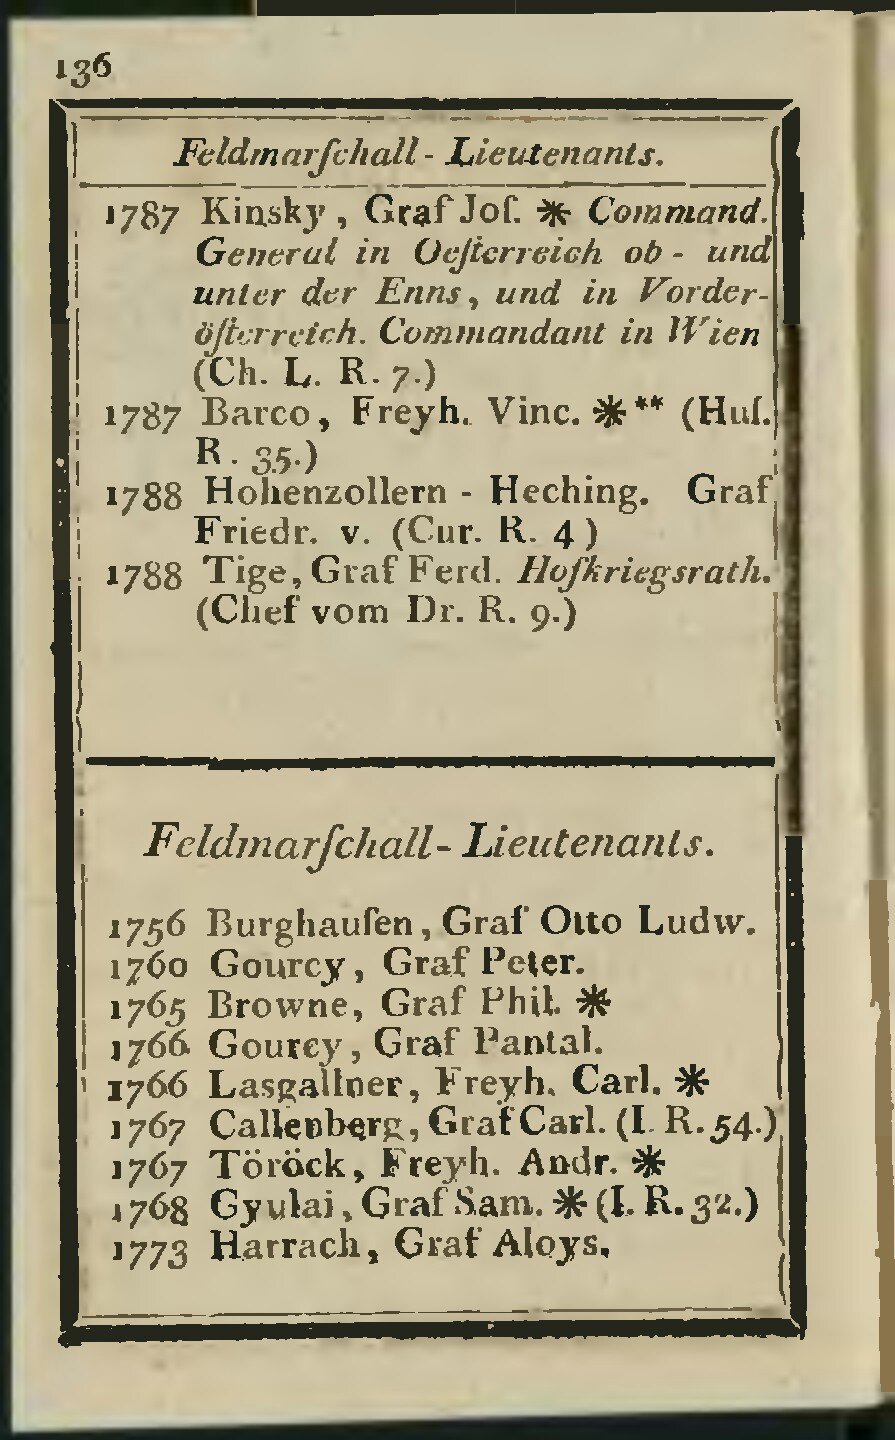 136
Feldmarſchall - Lieutenants.
1787 Kinsky, Graf Joſ. ✻ Command.
General in Oeſterreich ob - und
unter der Enns, und in Vorder-
öſterreich. Commandant in Wien
(Ch. L. R. 7.)
1787 Barco, Freyh. Vinc. ✻** (Huſ.
R. 35.)
1788 Hohenzollern - Heching. Graf
Friedr. v. (Cur. R. 4)
1788 Tige, Graf Ferd. Hofkriegsrath.
(Chef vom Dr. R. 9.)
Feldmarſchall- Lieutenants.
1756 Burghauſen, Graf Otto Ludw.
1760 Gourcy, Graf Peter.
1765 Browne, Graf Phil. ✻
1766 Gourcy, Graf Pantal.
1766 Lasgallner, Freyh. Carl. ✻
1767 Callenberg, Graf Carl. (I. R. 54.)
1767 Töröck, Freyh. Andr. ✻
1768 Gyulai, Graf Sam. ✻ (I. R. 32.)
1773 Harrach, Graf Aloys.